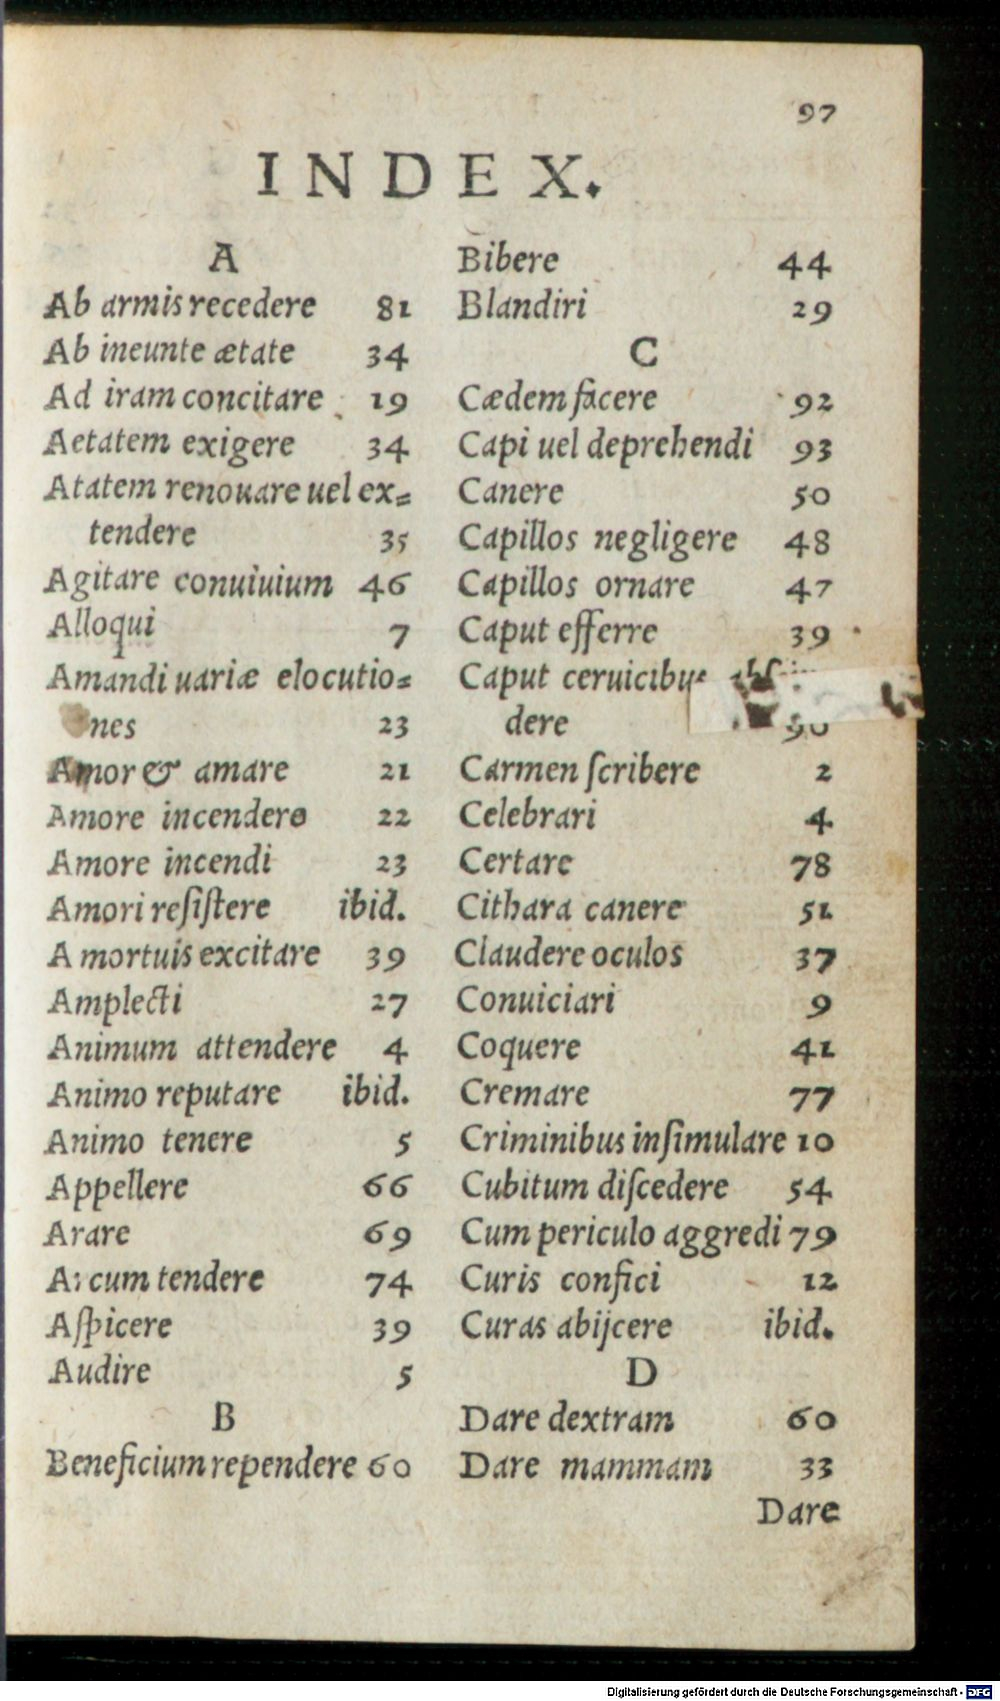 97
INDEX.
A
Ab armis recedere 81
Ab ineunte ætate 34
Ad iram concitare 19
Aetatem exigere 34
Atatem renouare uel ex=
tendere 35
Agitare conuiuium 46
Alloqui 7
Amandi uariæ elocutio=
nes 23
Amor & amare 21
Amore incendere 22
Amore incendi 23
Amori reſiſtere ibid.
A mortuis excitare 39
Amplecti 27
Animum attendere 4
Animo reputare ibid.
Animo tenere 5
Appellere 66
Arare 69
Arcum tendere 74
Aſpicere 39
Audire 5
B
Beneficium rependere 60
Bibere 44
Blandiri 29
C
Cædem facere 92
Capi uel deprehendi 93
Canere 50
Capillos negligere 48
Capillos ornare 47
Caput efferre 39
Caput ceruicibus
dere 90
Carmen ſcribere 2
Celebrari 4
Certare 78
Cithara canere 51
Claudere oculos 37
Conuiciari 9
Coquere 41
Cremare 77
Criminibus inſimulare 10
Cubitum diſcedere 54
Cum periculo aggredi 79
Curis confici 12
Curas abijcere ibid.
D
Dare dextram 60
Dare mammam 33
Dare
Digitalisierung gefördert durch die Deutsche Forschungsgemeinschaft - DFG